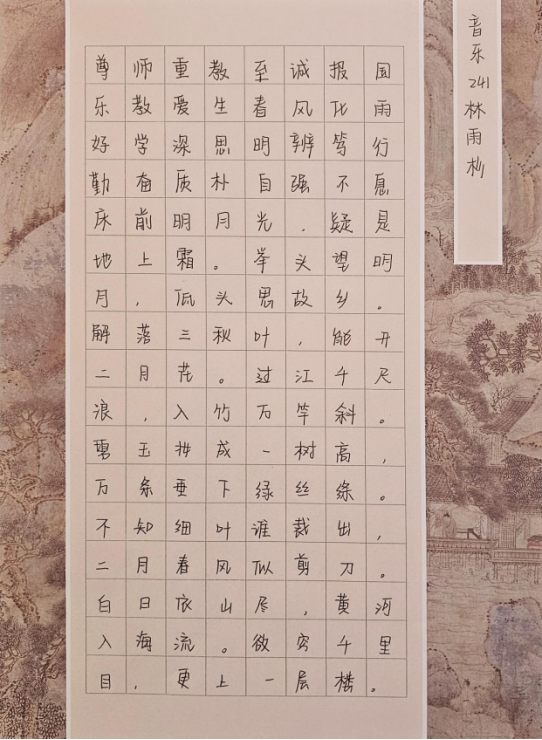 尊师重教至诚报国
乐教爱生春风化雨
好学深思明辨笃行
勤奋质朴自强不息
床前明月光，疑是
地上霜。举头望明
月，低头思故乡。
解落三秋叶，能开
二月花。过江千尺
浪，入竹万竿斜。
碧玉妆成一树高，
万条垂下绿丝绦。
不知细叶谁裁出，
二月春风似剪刀。
白日依山尽，黄河
入海流。欲穷千里
目，更上一层楼。
音乐241林雨杉